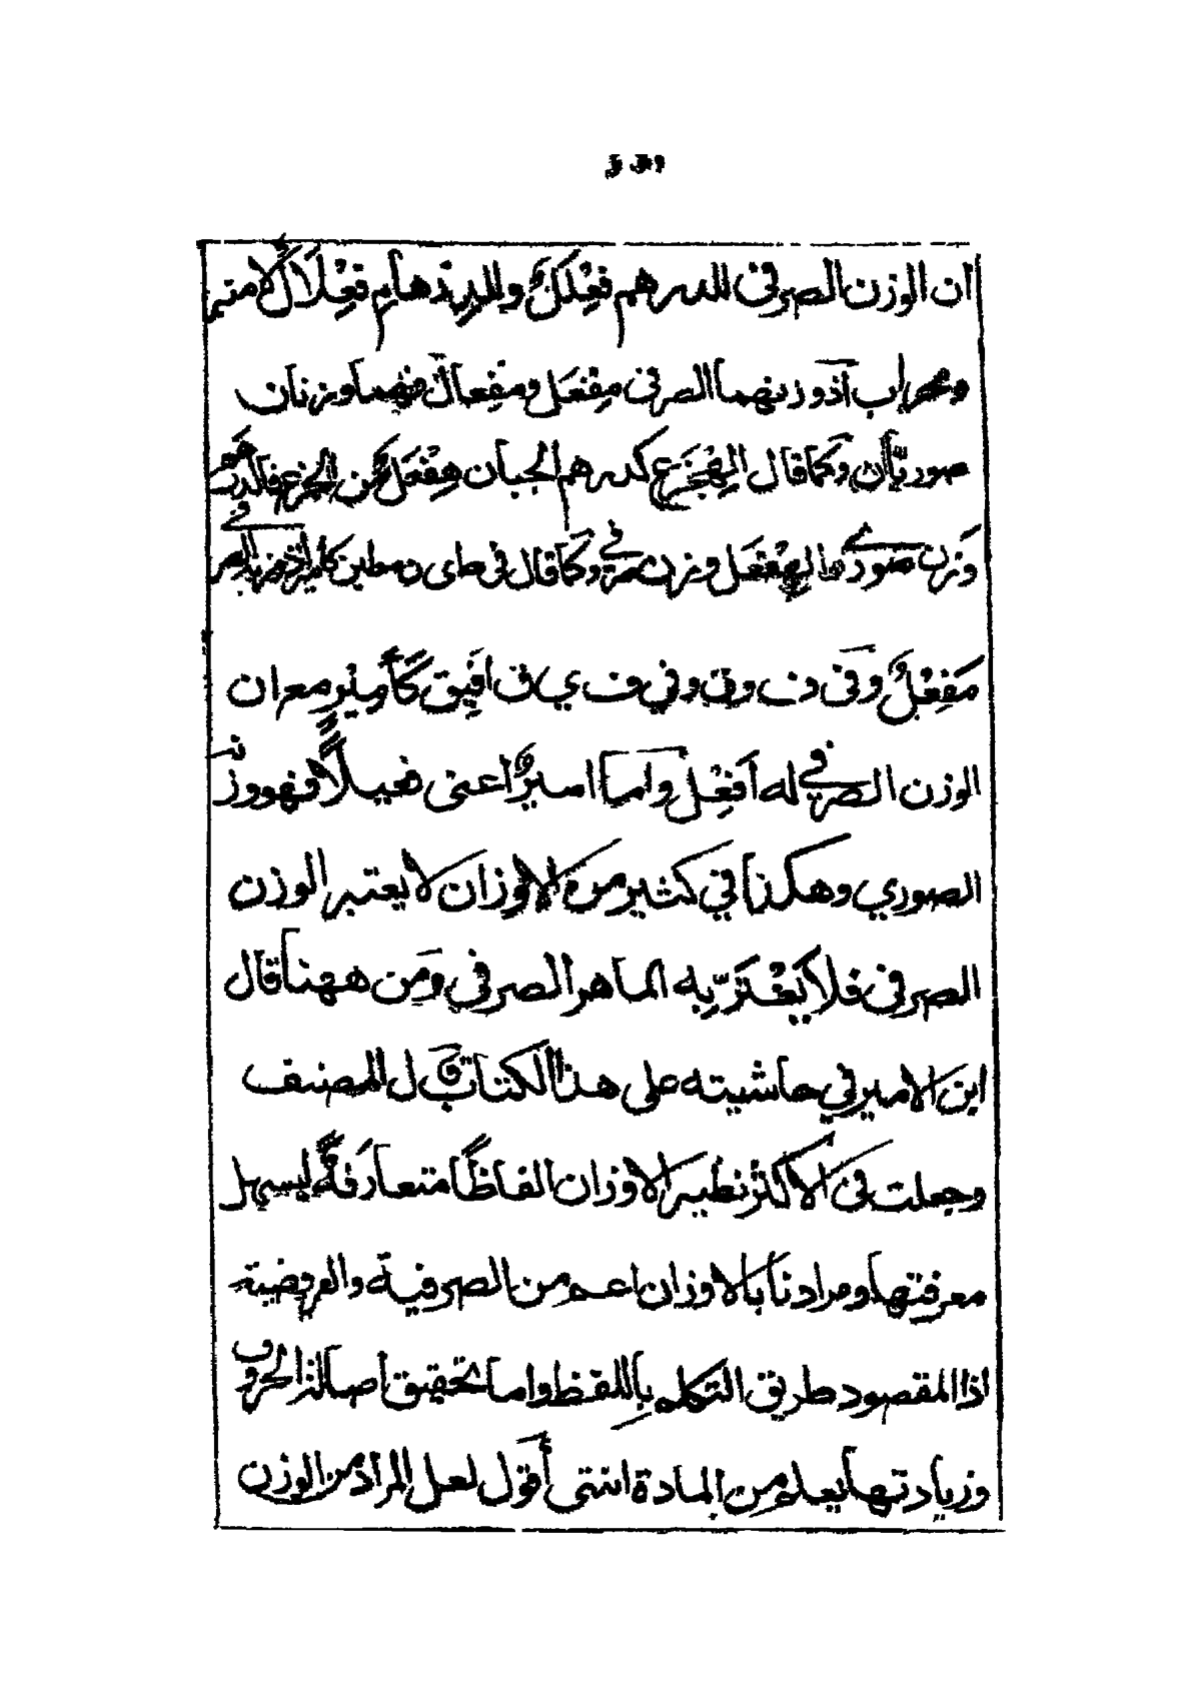 ان الوزن الصرفى للدرهم فِعْلَلٌ وللدِرْهام فِعْلَالٌ لا منبر
ومحراب اذ وزنهما الصرفى مِفْعَل ومِفْعال فهما وزنان
صوريّان وكما قال الهِجْزَع كدرهم الجبان هِفْعَل من الجزع
وزن صورى الهِفْعَل وزن صرفى وكما قال فى
مَفْعِلٌ وفى وفي ف ي ق افِيق كأمير مع ان
الوزن الصرفي له أَفْعِل واما اسير اعنى فعيلاً فهو وزنه
الصوري وهكذا في كثير من الاوزان لا يعتبر الوزن
الصرفى فلا يَغْتَرّ به الماهر الصرفي ومن ههنا قال
ابن الامير في حاشيته على هذا الكتاب قال المصنف
وجعلت فى الاكثر نظير الاوزان الفاظًا متعارَفةً ليسهل
معرفتها ومرادنا بالاوزان اعم من الصرفية والعروضية
اذا المقصود طريق التكلم باللفظ واما تحقيق اصالة الحروف
وزيادتها يعلم من المادة انتهى أقول لعل المراد من الوزن